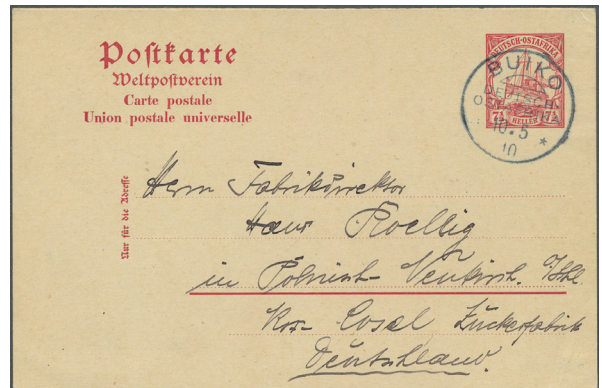 Postkarte
Weltpostverein
Carte postale
Union postale universelle
DEUTSCH-OSTAFRIKA
7½ HELLER 7½
BUIKO
DEUTSCH-
OSTAFRIKA
10.5
10
Nur für die Adresse
Herrn Fabrikdirektor
Hans Roellig
in Polnisch-Neukirch.
Krs. Cosel Zuckerfabrik
Deutschland.